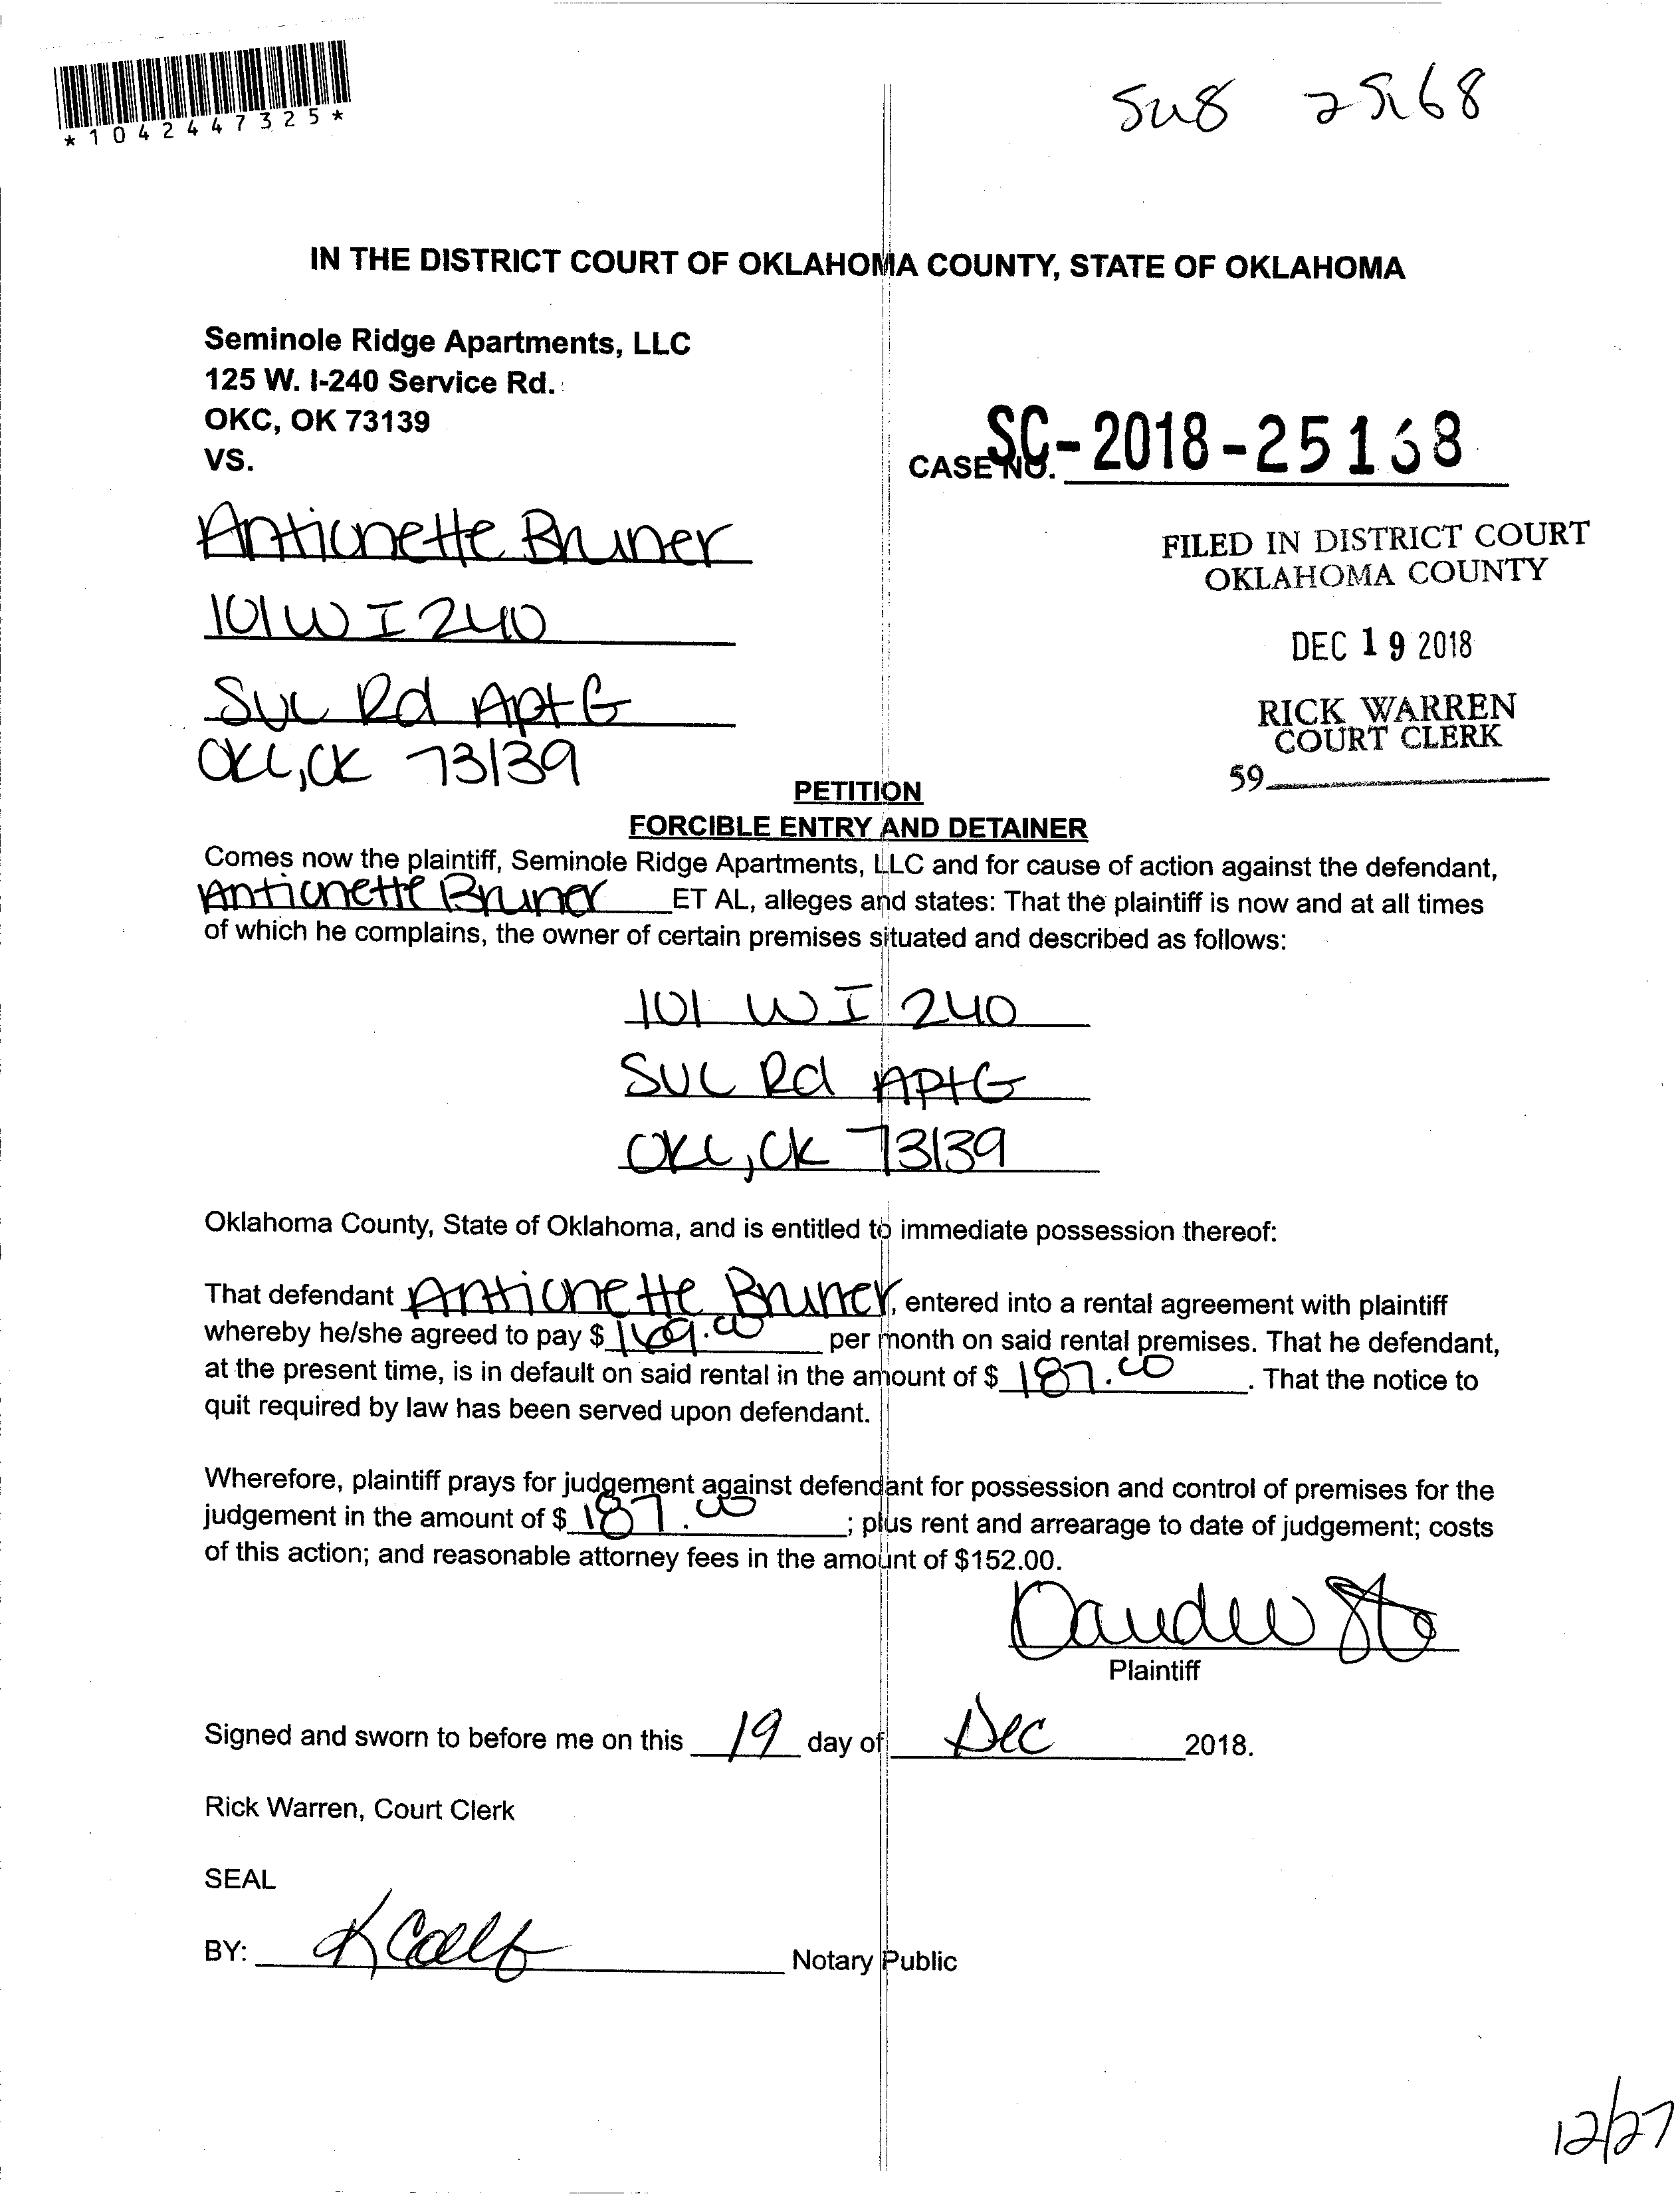 *1042447325*
IN THE DISTRICT COURT OF OKLAHOMA COUNTY, STATE OF OKLAHOMA
Seminole Ridge Apartments, LLC
125 W. I-240 Service Rd.
OKC, OK 73139
VS.
CASE NO. SC-2018-25168
Antionette Bruner
101 W I 240
Svc Rd Apt G
OKC, OK 73139
FILED IN DISTRICT COURT
OKLAHOMA COUNTY
DEC 19 2018
RICK WARREN
COURT CLERK
59
PETITION
FORCIBLE ENTRY AND DETAINER
Comes now the plaintiff, Seminole Ridge Apartments, LLC and for cause of action against the defendant,
Antionette Bruner ET AL, alleges and states: That the plaintiff is now and at all times
of which he complains, the owner of certain premises situated and described as follows:
101 W I 240
SVC Rd Apt G
OKC, OK 73139
Oklahoma County, State of Oklahoma, and is entitled to immediate possession thereof:
That defendant Antionette Bruner, entered into a rental agreement with plaintiff
whereby he/she agreed to pay $ 169.00 per month on said rental premises. That he defendant,
at the present time, is in default on said rental in the amount of $ 187.00. That the notice to
quit required by law has been served upon defendant.
Wherefore, plaintiff prays for judgement against defendant for possession and control of premises for the
judgement in the amount of $ 187.00; plus rent and arrearage to date of judgement; costs
of this action; and reasonable attorney fees in the amount of $152.00.
Plaintiff
Signed and sworn to before me on this 19 day of Dec 2018.
Rick Warren, Court Clerk
SEAL
BY: Notary Public
12/27